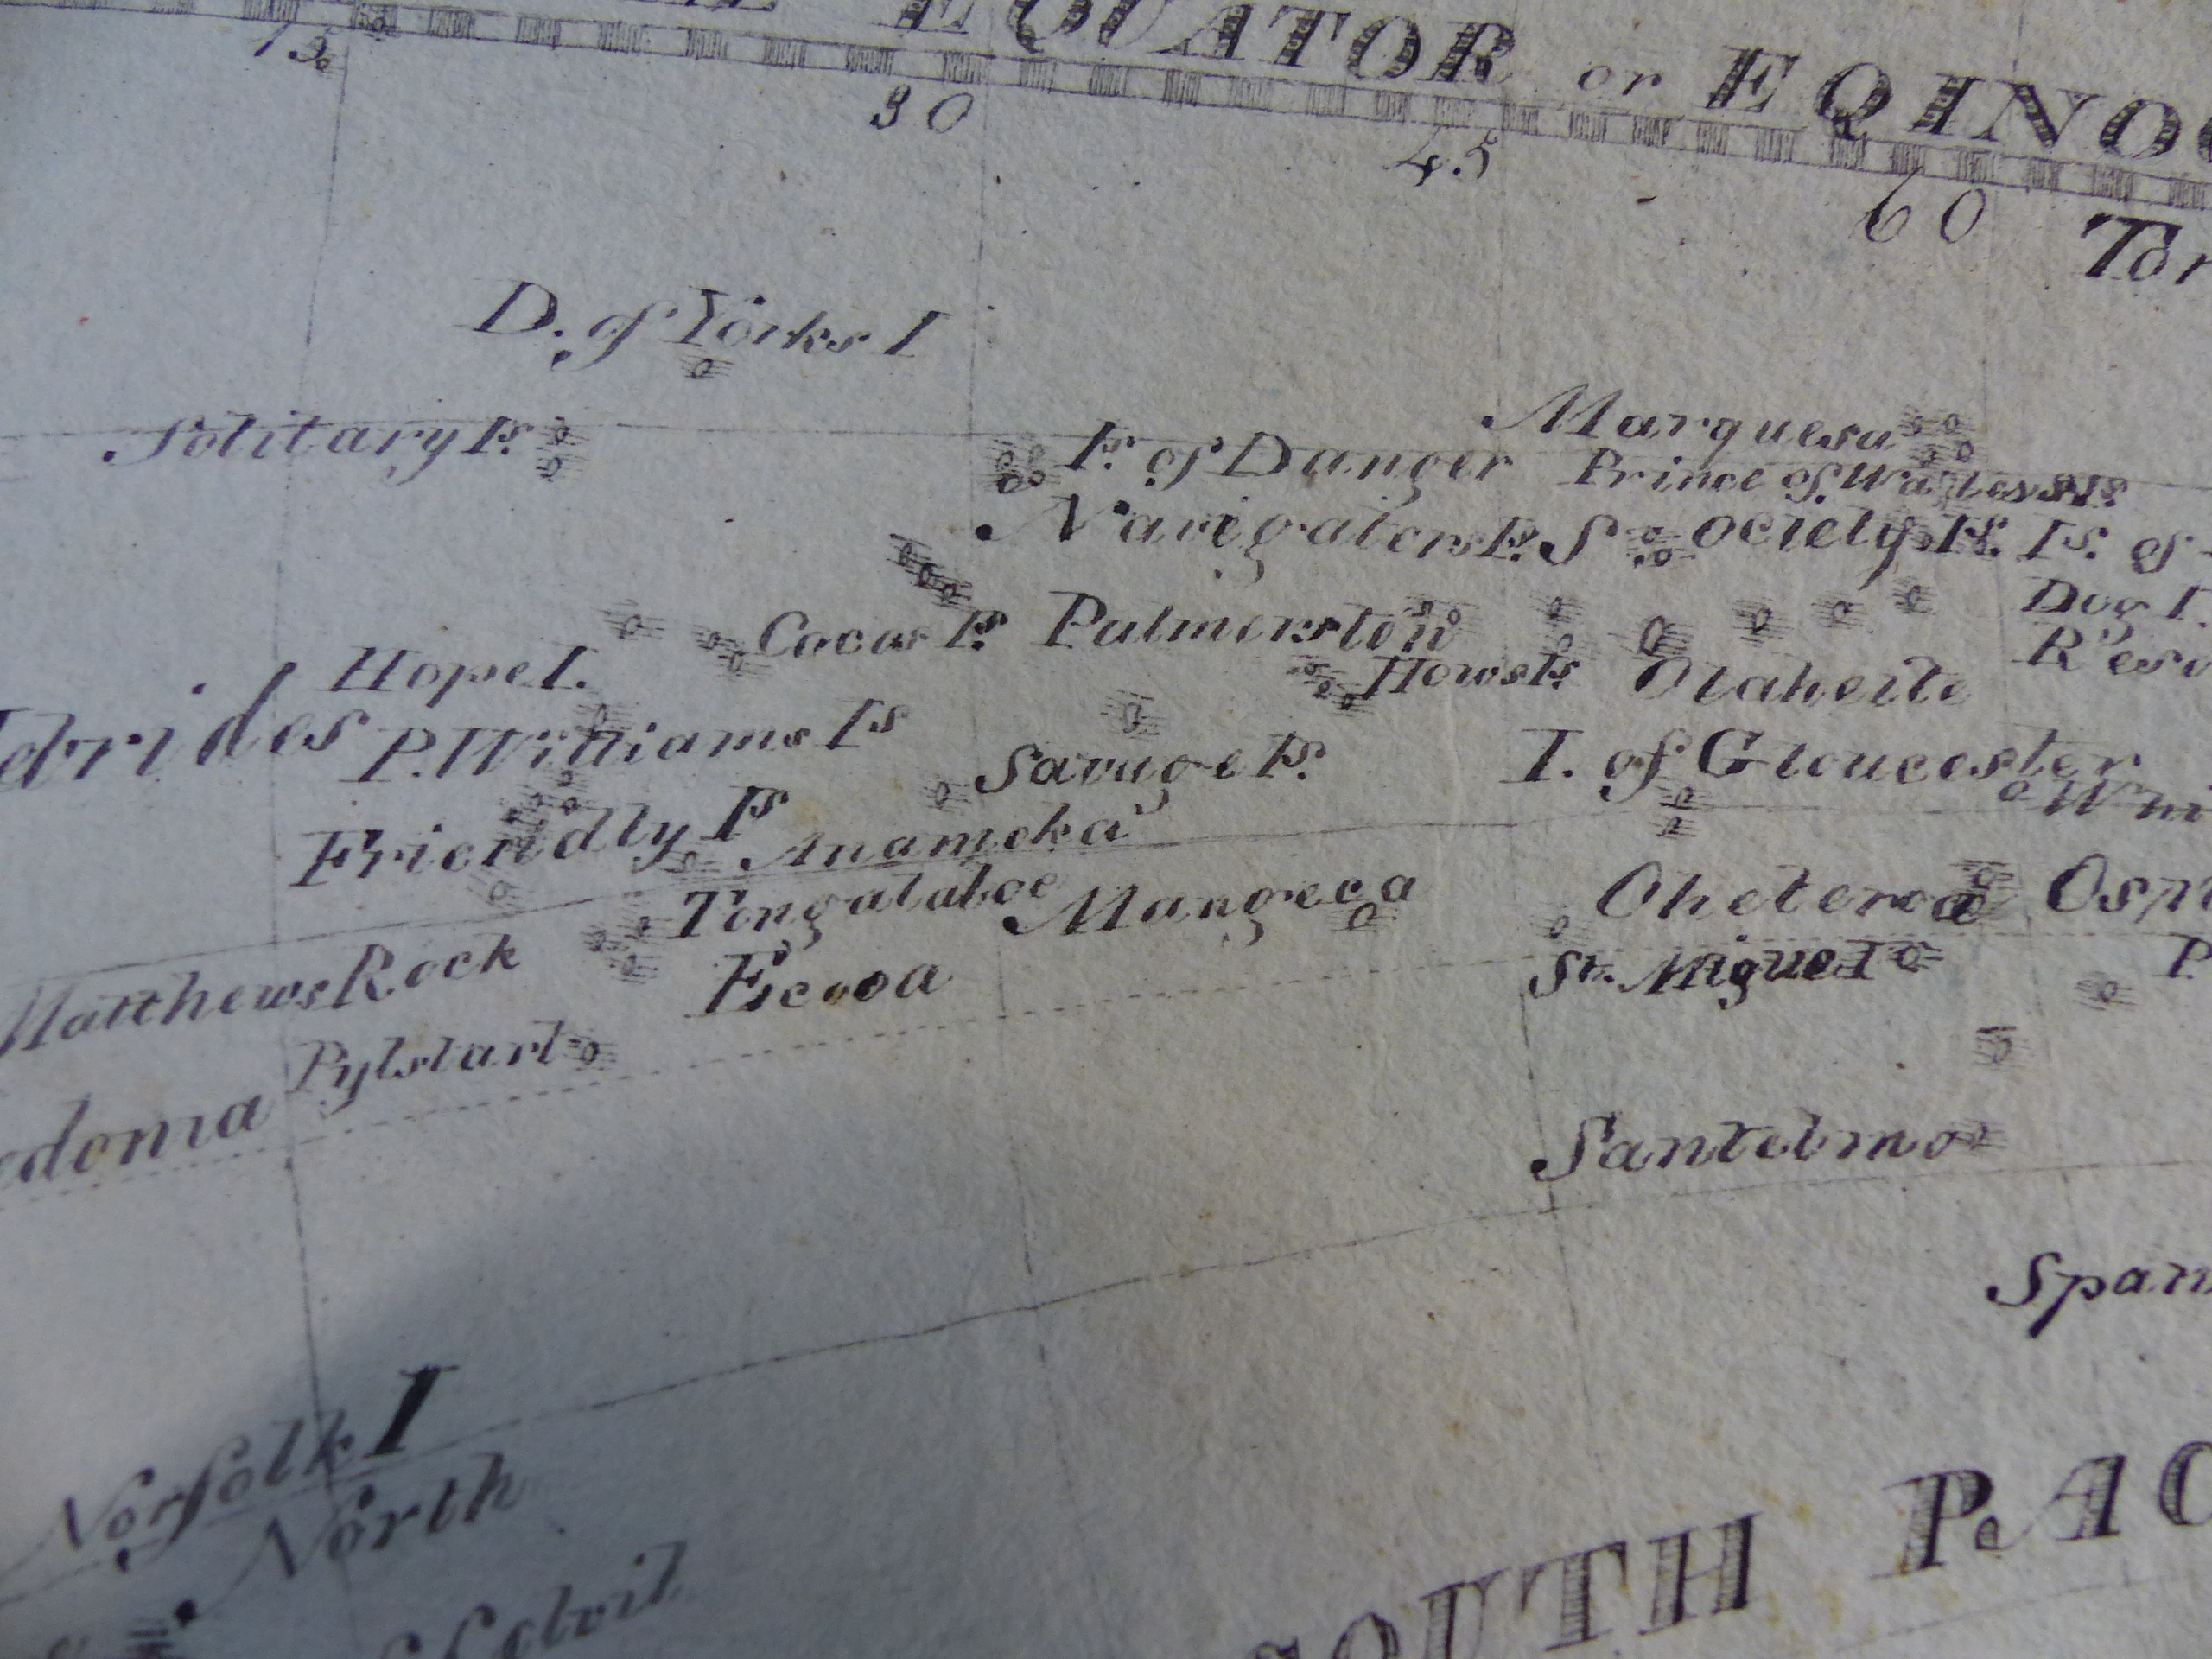 EQUATOR or EQINO
75
30
45
60
Tor
D. of Yorks I
Solitary Is.
Marquesa
Is. of Danger
Prince of Wales Is.
Navigators Is.
Society Is.
Is. of
Dog I.
Cocos Is.
Palmerston
Hope I.
Hows Is
Otaheite
edrides
P. Williams Is
Savage Is.
I. of Gloucester
Friendly Is
Anamoka
Tongataboe
Mangeea
Oheteroa
Matthews Rock
Eeooa
St. Miguel I
P
Pylstart
edonia
Santelmo
Span
Norfolk I
North
SOUTH PAC